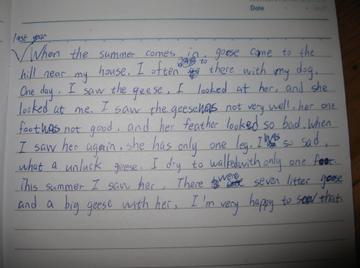 Date
last year
When the summer comes in. goose come to the
hill near my house. I often go to there with my dog.
One day. I saw the geese, I looked at her, and she
looked at me. I saw the geese was not very well, her one
foot was not good, and her feather looked so bad. When
I saw her again, she has only one leg. I was so sad.
what a unluck geese. I dry to walked with only one
This summer I saw her. There were seven litter goose
and a big geese with her, I'm very happy to see that.